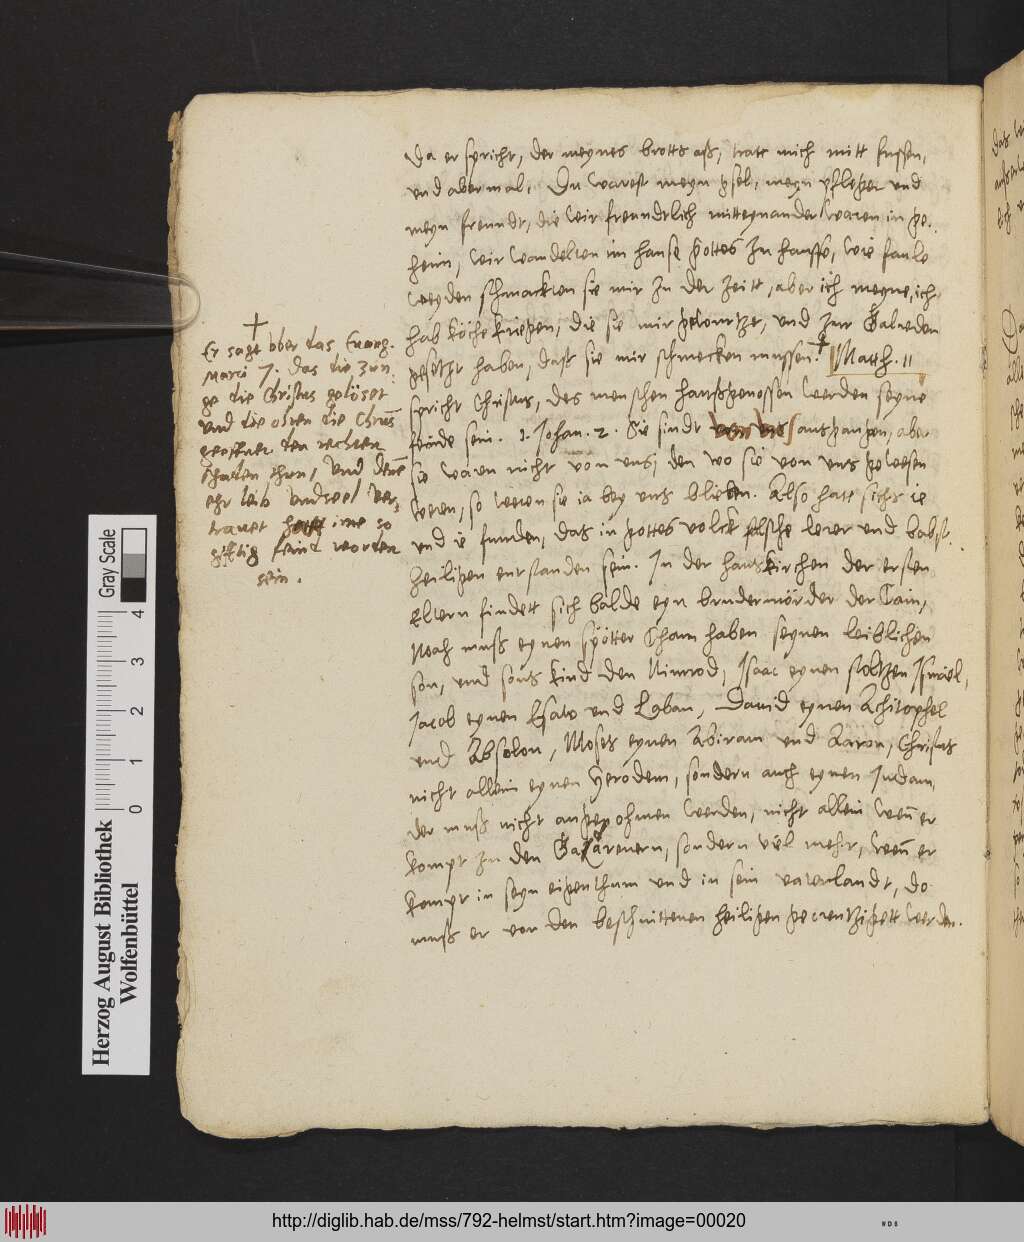 Da er spricht, der meynes brotts aß, tratt mich mitt fussen,
und abermal, Du warest meyn gsel, meyn pfleger und
meyn freundt, die wir freundtlich mitteynander waren in ge-
heim, wir wandelten im hause gottes zu hauffe, wie faule
weyden schmackten sie mir zu der zeitt, aber ich meyne, ich
hab köche kriegen, die sie mir gewurtzet, und zur
gesetzt haben, dast sie mir schmecken mussen. † Matth. 11
spricht Christus, des menschen haußgenossen werden seyne
feinde sein. 1. Johan. 2. Sie sindt von uns ausgangen, aber
sie waren nicht von uns, den wo sie von uns gewesen
weren, so weren sie ia bey uns blieben. Also hatt sichs ie
und ie funden, das in gottes volck falsche lerer und
heiligen entstanden sein. In der hauskirchen der ersten
Eltern findett sich balde eyn brudermörder der Cain,
Noah muß eynen spötter Cham haben seynen leiblichen
son, und sonst kind den Nimrod, Isaac eynen stoltzen Ismael,
Jacob eynen Esaw und Laban, Dauid eynen Achitophel
und Absolon, Moses eynen Abiram und Aaron, Christus
nicht allein eynen Herodem, sondern auch eynen Judam,
der muß nicht angenohmen werden, nicht allein wen er
kompt zu den Gazarenern, sondern viel mehr, wen er
kompt in seyn eigenthum und in sein vaterlandt, do
muß er von den beschnittenen heiligen gecreutzigett werden.
†
Er sagt vber das Euang.
Marci 7. das die zun-
ge die Christus gelöset
und die ohren die Chrus
geoffnet den rechten
schaden thun, und denen
ehr leib und seel ver-
trauet hatt ime so
gifftig feind worden
sein.
Herzog August Bibliothek
Wolfenbüttel
Gray Scale
0 1 2 3 4
http://diglib.hab.de/mss/792-helmst/start.htm?image=00020